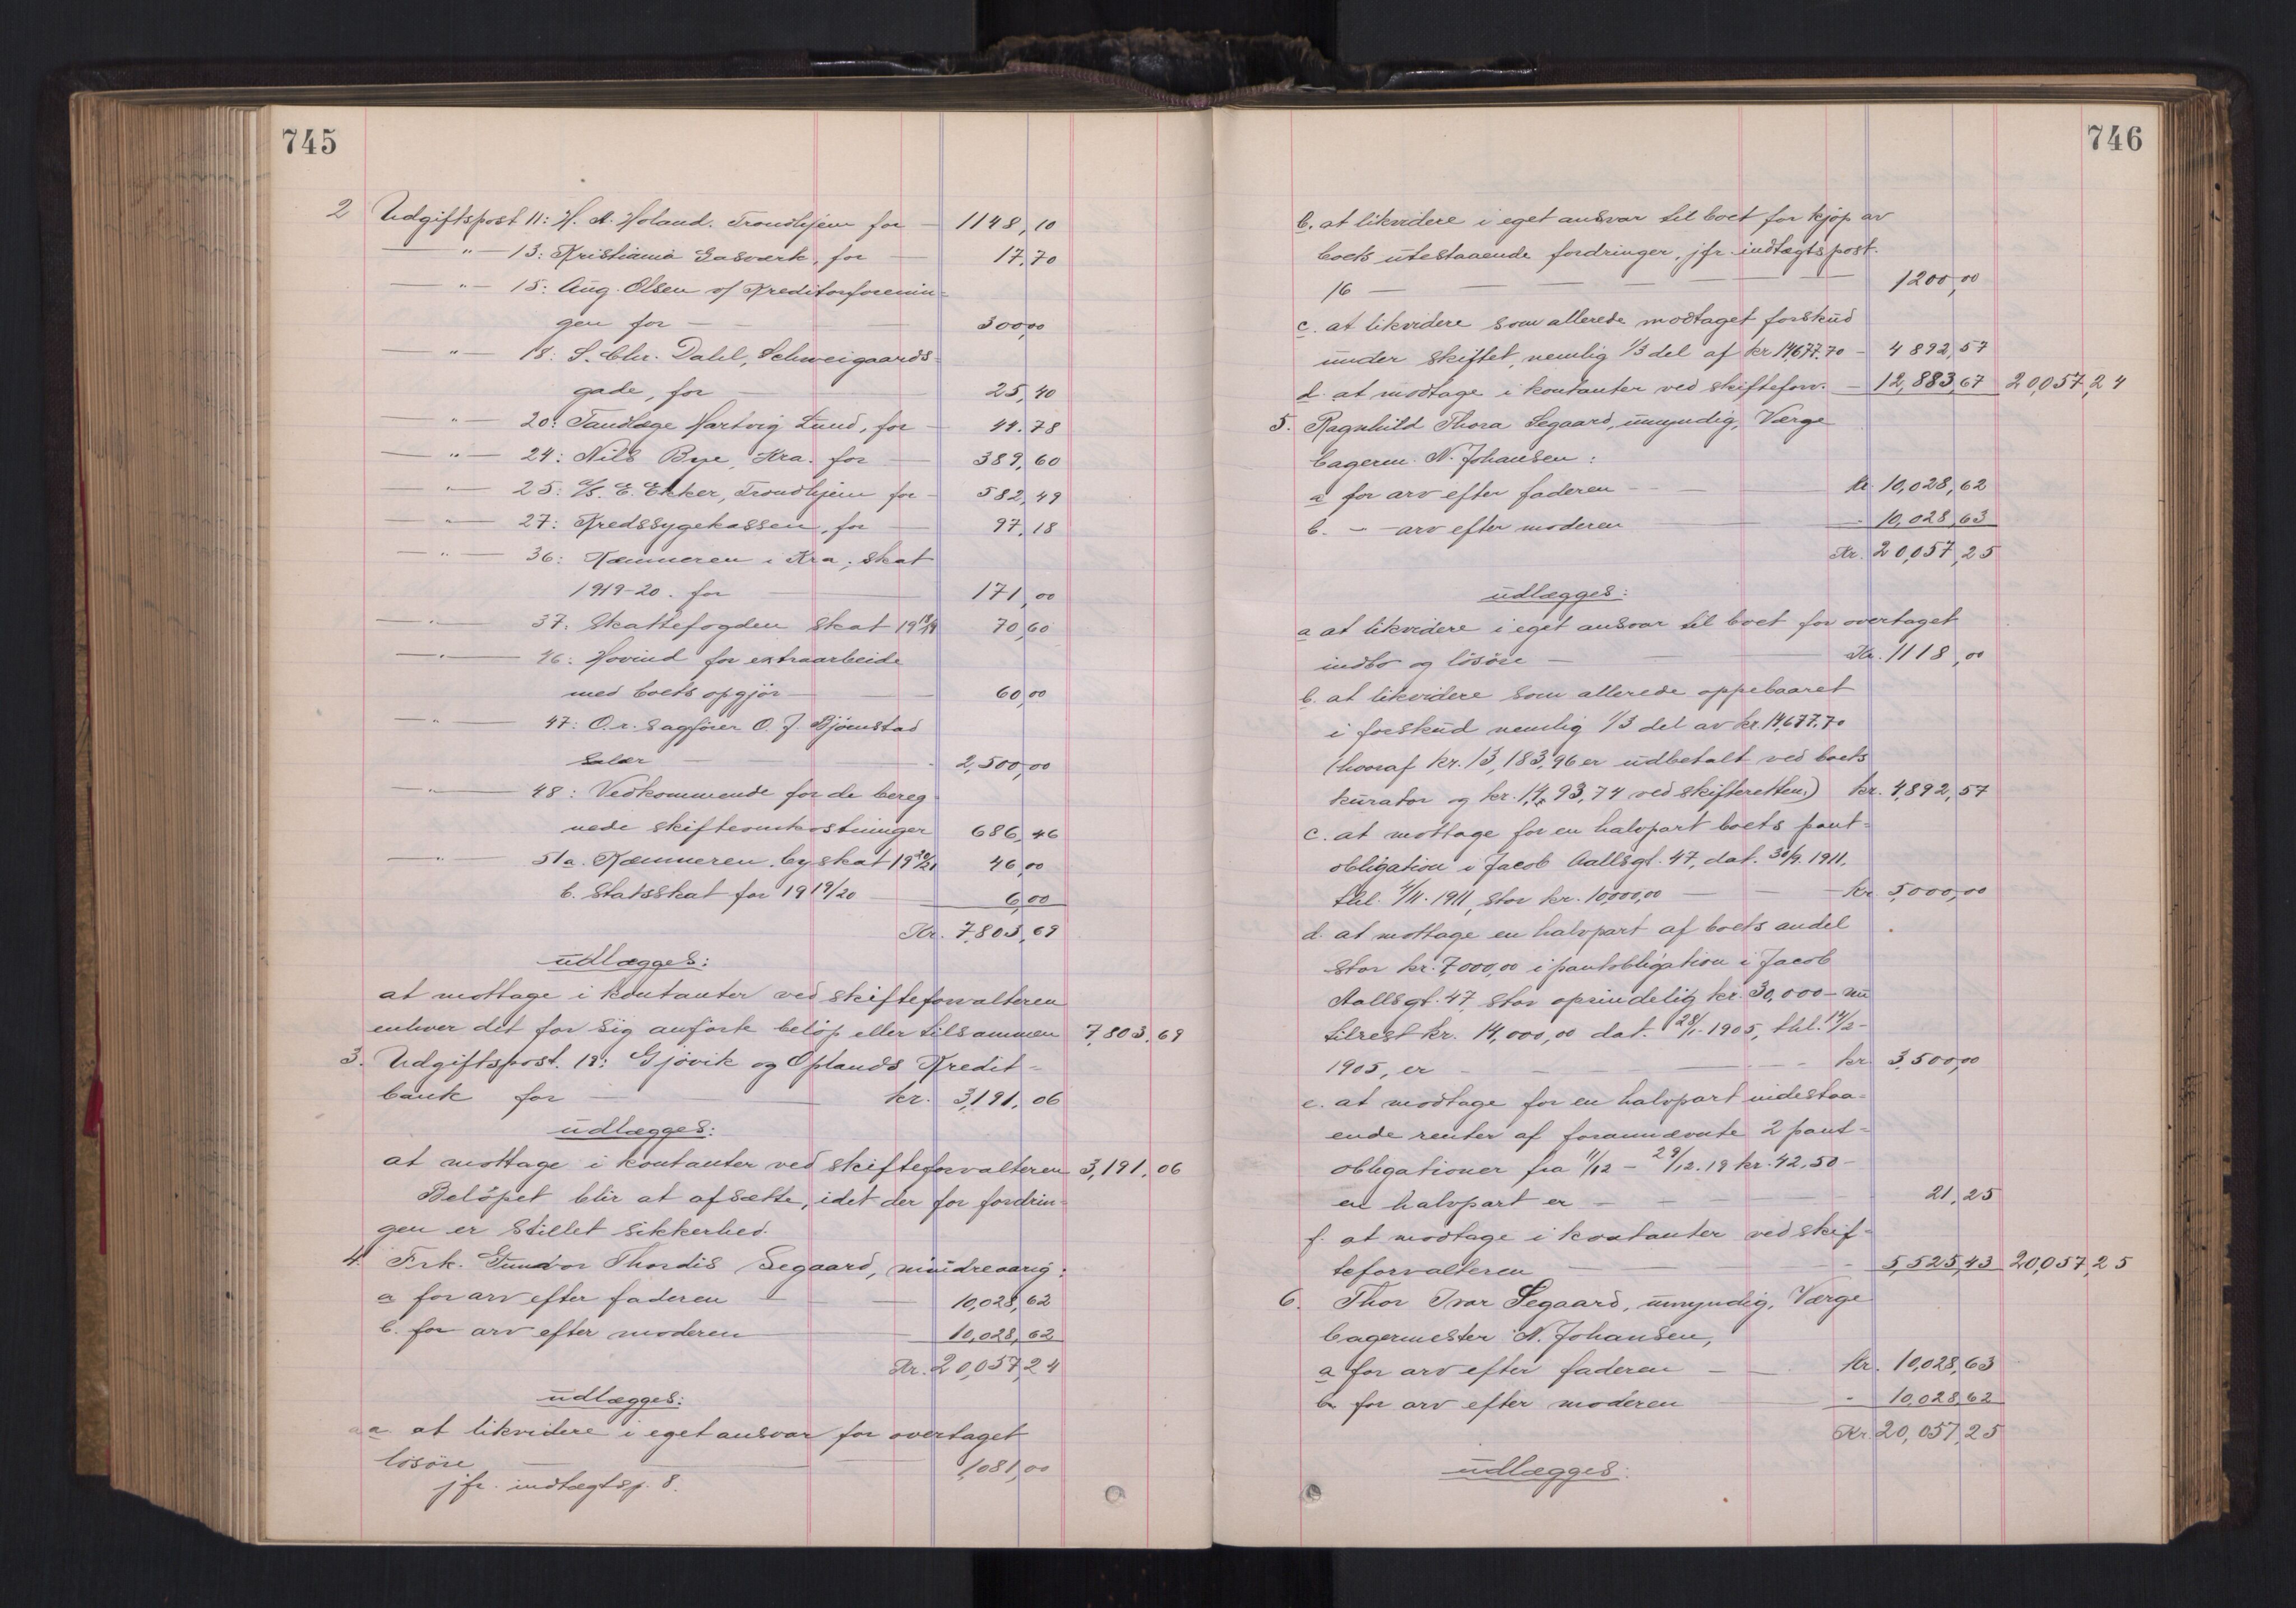 745
2 Udgiftspost 11: H. A. Holand. Trondhjem for — 1148,10
— " — 13: Kristiania Gasverk, for — 17,70
— " — 15: Aug. Olsen v/ Kreditorforenin-
gen for — 300,00
— " — 18: S. Chr. Dahl, Schweigaards-
gade, for — 25,40
— " — 20: Tandlæge Hartvig Lund, for — 44.78
— " — 24: Nils Bye, Kra. for — 389,60
— " — 25: A/S. E. Ekker, Trondhjem for — 582,49
— " — 27: Kredssygekassen, for — 97,18
— " — 36: Kæmneren i Kra, skat
1919-20. for — 171,00
— " — 37: Skattefogden skat 19 18/19 70,60
— " — 46: Hovind for extraarbeide
med boets opgjör — 60,00
— " — 47: O.r. sagförer O. J. Bjömstad
salær — 2,500,00
— " — 48: Vedkommende for de bereg
nede skifteomkostninger 686,46
— " — 51a. Kæmneren, byskat 19 20/21 46,00
b. Statsskat for 19 19/20 — 6,00
Kr. 7,803,69
udlægges:
at mottage i kontanter ved skifteforvalteren
enhver det for sig anförte belöp eller tilsammen 7,803,69
3. Udgiftspost. 19: Gjövik og Oplands Kredit-
bank for — kr. 3,191,06
udlægges:
at mottage i kontanter ved skifteforvalteren 3,191,06
Belöpet blir at afsætte, idet der for fordrin-
gen er stillet sikkerhed.
4. Frk. Gunvor Thordis Segaard, mindreaarig:
a for arv efter faderen — 10,028,62
b. for arv efter moderen — 10,028,62
Kr. 20,057,24
udlægges:
a at likvidere i eget ansvar for overtaget
lösöre — 1,081,00
jfr. indtægtsp. 8.
746
b. at likvidere i eget ansvar til boet for kjöp av
boets utestaaende fordringer, jfr. indtægtspost.
16 — 1200,00
c. at likvidere som allerede modtaget forskud
under skiftet, nemlig 1/3 del af kr 14,677.70 — 4892,57
d. at modtage i kontanter ved skifteforv. — 12,883,67 20,057,24
5. Ragnhild Thora Segaard, umyndig, Værge
bagerm. N. Johansen:
a for arv efter faderen — kr. 10,028,62
b. — arv efter moderen — 10,028,63
Kr. 20,057,25
udlægges:
a at likvidere i eget ansvar til boet for overtaget
indbo og lösöre — Kr. 1118,00
b. at likvidere som allerede oppebaaret
i forskud nemlig 1/3 del av kr. 14,677.70
(hvoraf kr. 13,183,96 er udbetalt ved boets
kurator og kr. 1,493,74 ved skifteretten) kr. 4,892,57
c. at mottage for en halvpart boets pant-
obligation i Jacob Aallsgt. 47, dat. 30/9. 1911,
thl. 4/11. 1911, stor kr. 10,000,00 — kr. 5,000,00
d. at mottage en halvpart af boets andel
stor kr. 7,000,00 i pantobligation i Jacob
Aallsgt. 47, stor oprindelig kr. 30,000 — nu
tilrest kr. 14,000,00 dat. 28/1 1905, thl. 14/2 -
1905, er — kr. 3,500,00
e. at modtage for en halvpart indestaa-
ende renter af forannævnte 2 pant-
obligationer fra 11/12 — 29/12. 19 kr. 42,50 —
en halvpart er — 21,25
f. at modtage i kontanter ved skif-
teforvalteren — 5,525,43 20,057,25
6. Thor Ivar Segaard, umyndig, Værge
bagermester N. Johansen,
a for arv efter faderen — kr. 10,028,63
b for arv efter moderen — 10,028,62
Kr. 20,057,25
udlægges: